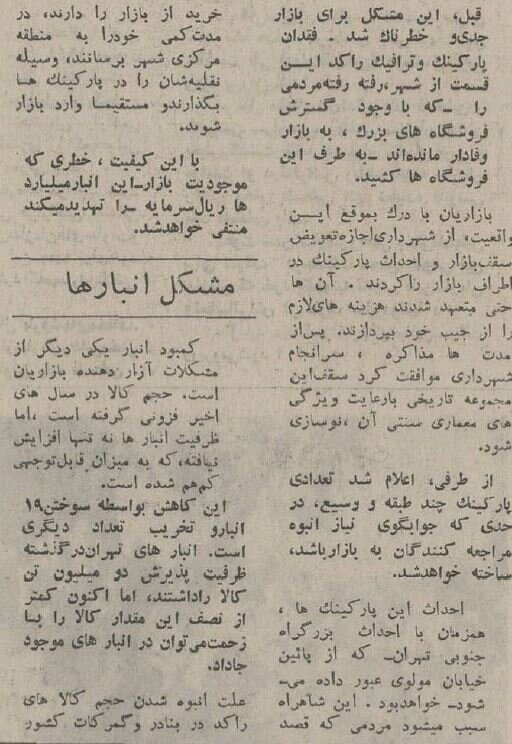 قبل، این مشکل برای بازار
جدی‌و خطرناك شد . فقدان
پارکینك وترافیك راکد ایــن
قسمت از شهر،رفته رفته‌مردمی
را ـ‌که با وجود گسترش
فروشگاه های بزرك ، به بازار
وفادار مانده‌اند ـ‌به طرف این
فروشگاه ها کشید.
بازاریان با درك بموقع ایــن
واقعیت، از شهرداری‌اجازه‌تعویض
سقف‌بازار و احداث پارکینك در
اطراف بازار راکردند . آن ها
حتی متعهد شدند هزینه های‌لازم
را از جیب خود بپردازند. پس‌از
مدت ها مذاکره ، سرانجام
شهرداری موافقت کرد سقف‌این
مجموعه تاریخی بارعایت ویژگی
های معماری سنتی آن ،نوسازی
شود.
از طرفی، اعلام شد تعدادی
پارکینك چند طبقه و وسیع، در
حدی که جوابگوی نیاز انبوه
مراجعه کنندگان به بازارباشد،
ساخته خواهدشد.
احداث این پارکینك ها ،
همزمان با احداث بزرگراه
جنوبی تهران‌ـ که از پائین
خیابان مولوی عبور داده می‌ـ
شودـ خواهدبود . این شاهراه
سبب میشود مردمی که قصد
خرید از بازار را دارند، در
مدت‌کمی خودرا به منطقه
مرکزی شهر برسانند، وسیله
نقلیه‌شان را در پارکینك هــا
بگذارندو مستقیمــا وارد بازار
شوند.
با این کیفیت ، خطری که
موجودیت بازارـ‌این انبارمیلیارد
ها ریال‌سرمایه ـ‌را تهدیدمیکند
منتفی خواهدشد.
مشکل انبارها
کمبود انبار یکی دیگر از
مشکلات آزار دهنده بازاریان
است. حجم کالا در سال های
اخیر فزونی گرفته است ،اما
ظرفیت انبار ها نه تنها افزایش
نیافته،که به میزان قابل‌توجهی
کم‌هم شده است.
این کاهش بواسطه سوختن۱۹
انبارو تخریب تعداد دیگری
است. انبار های تهران‌درگذشته
ظرفیت پذیرش دو میلیون تن
کالا راداشتند، اما اکنون کمتر
از نصف این مقدار کالا را بــا
زحمت‌می‌توان در انبار های موجود
جاداد.
علت انبوه شدن حجم کالا های
راکد در بنادر وگمرکات کشور